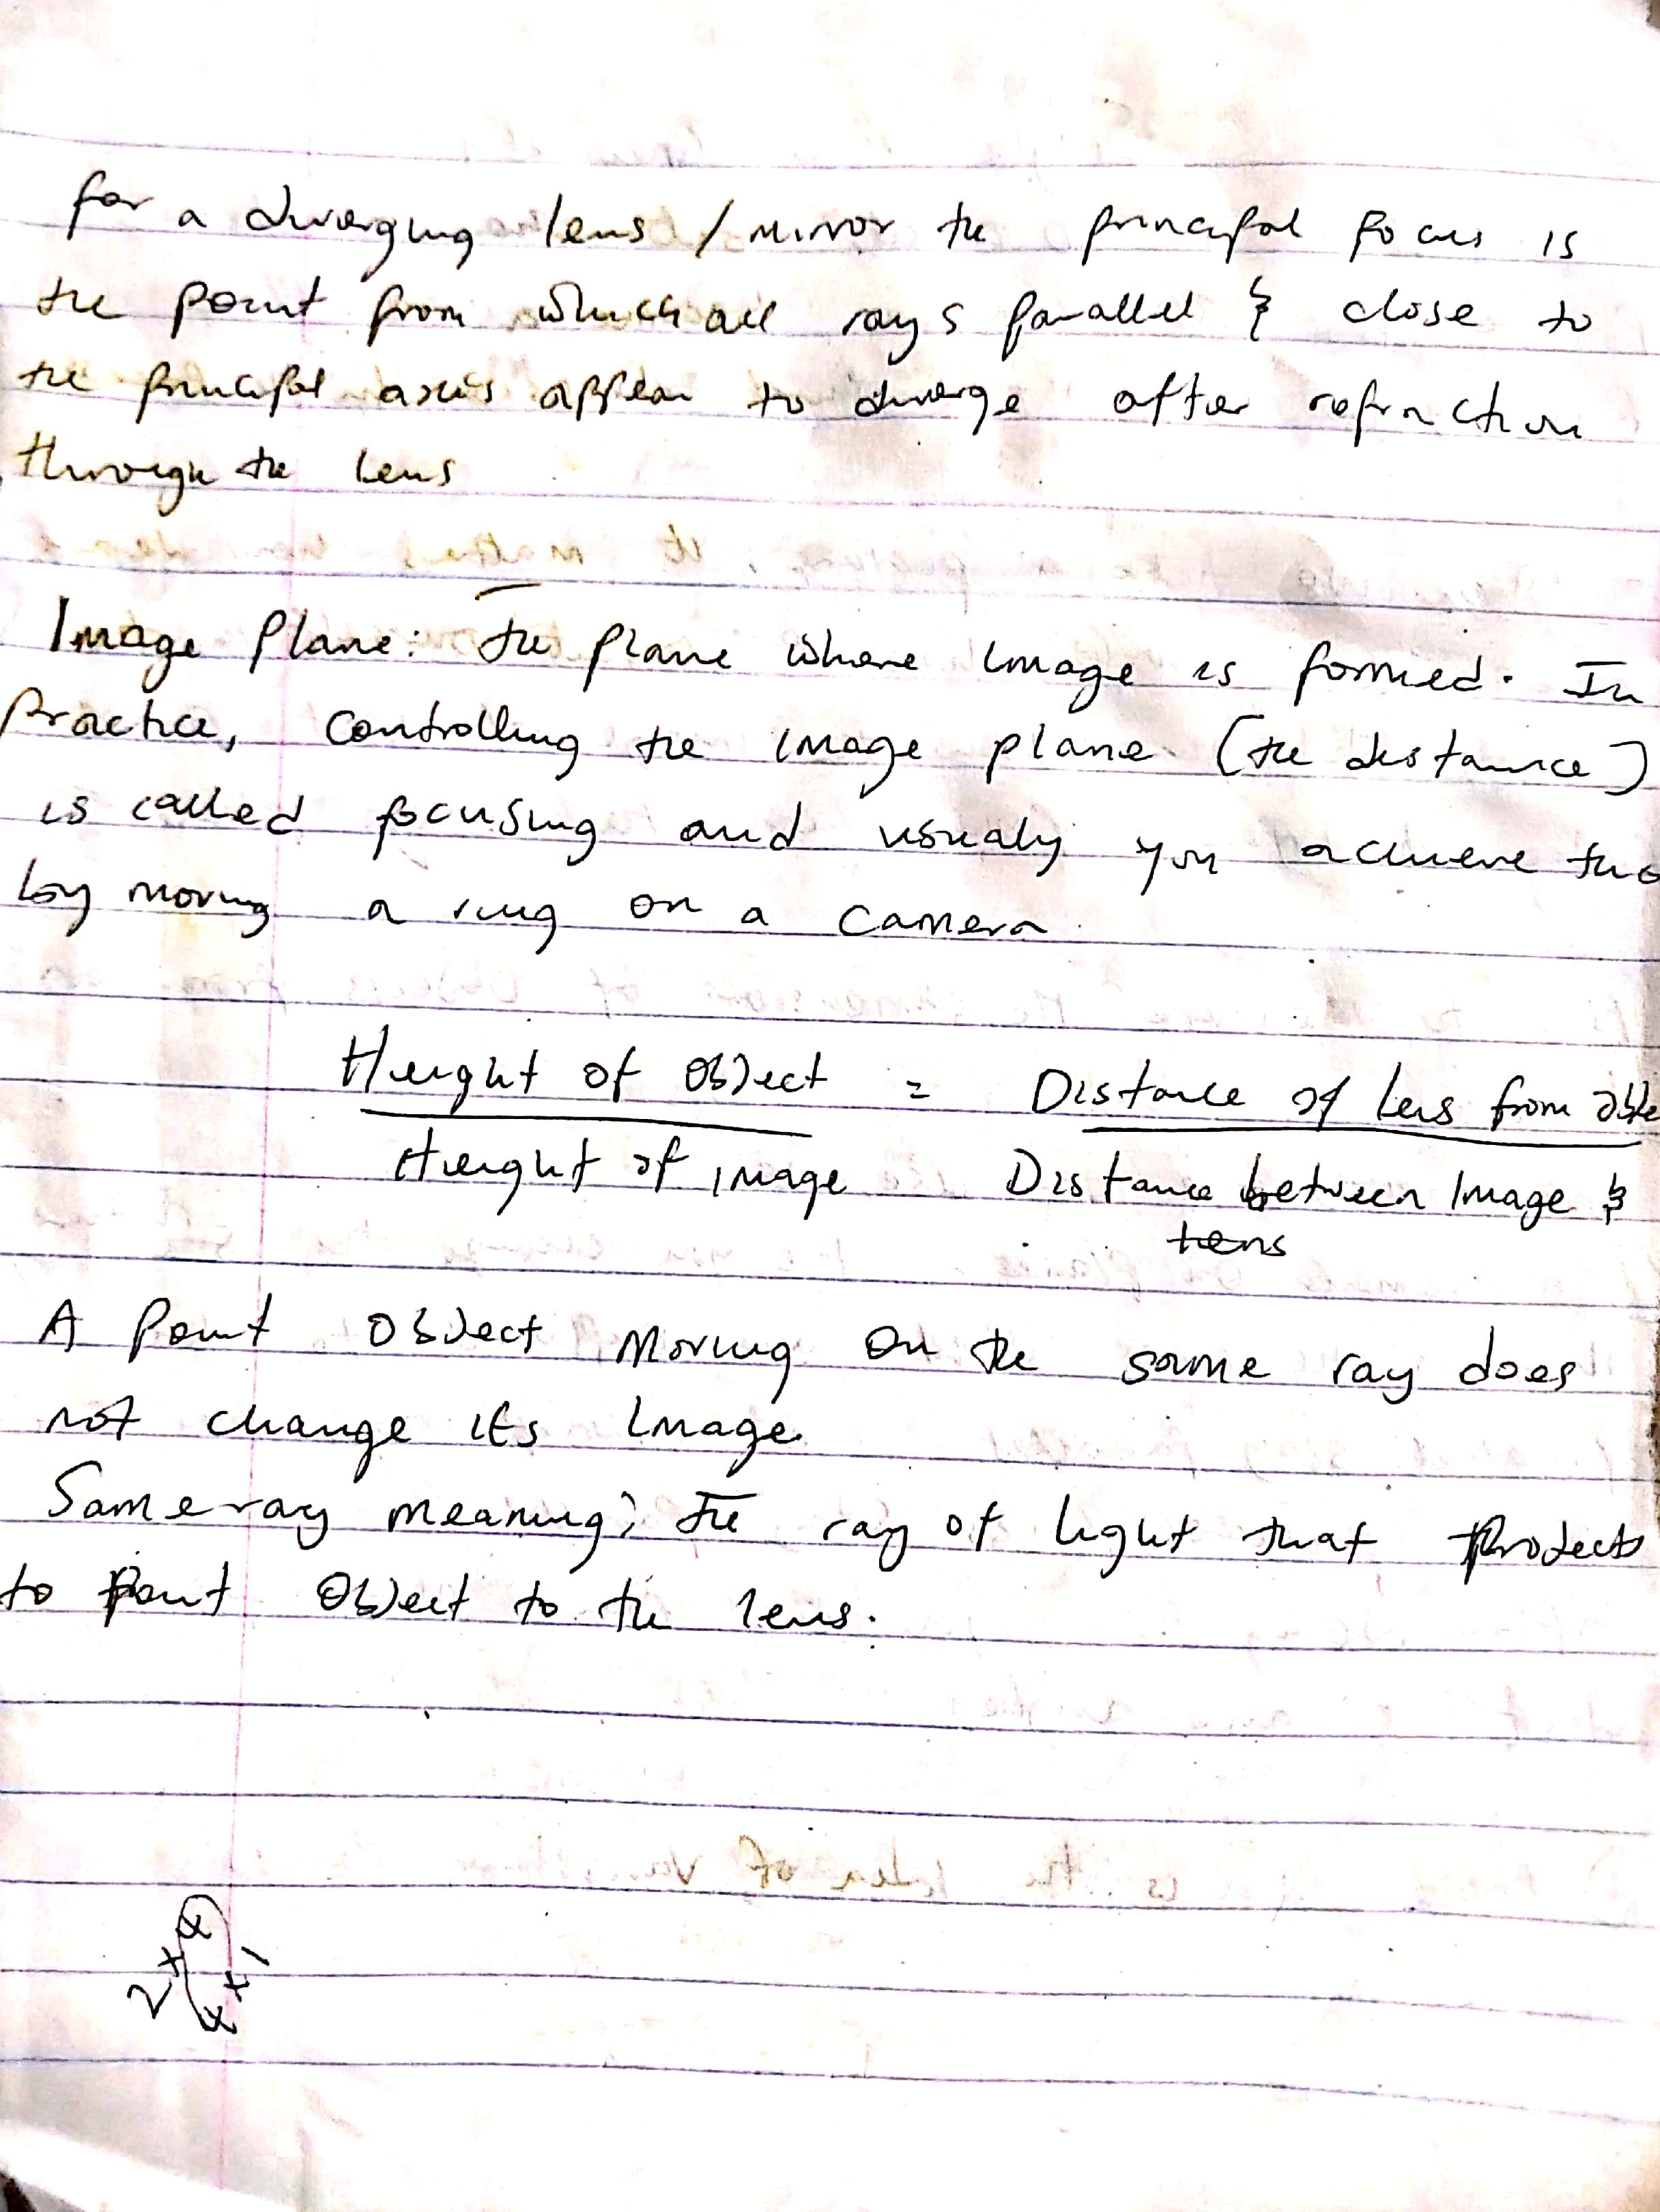 for a diverging lens / mirror the principal focus is
the point from which all rays parallel & close to
the principal axis appear to diverge after refraction
through the lens
Image Plane: The plane where image is formed. In
Practice, controlling the image plane (the distance)
is called focusing and usually you achieve this
by moving a ring on a camera
Height of Object = Distance of lens from obje
Height of image Distance between Image &
lens
A Point Object Moving on the same ray does
not change its image
Same ray meaning; The ray of light that Projects
to Point Object to the lens.